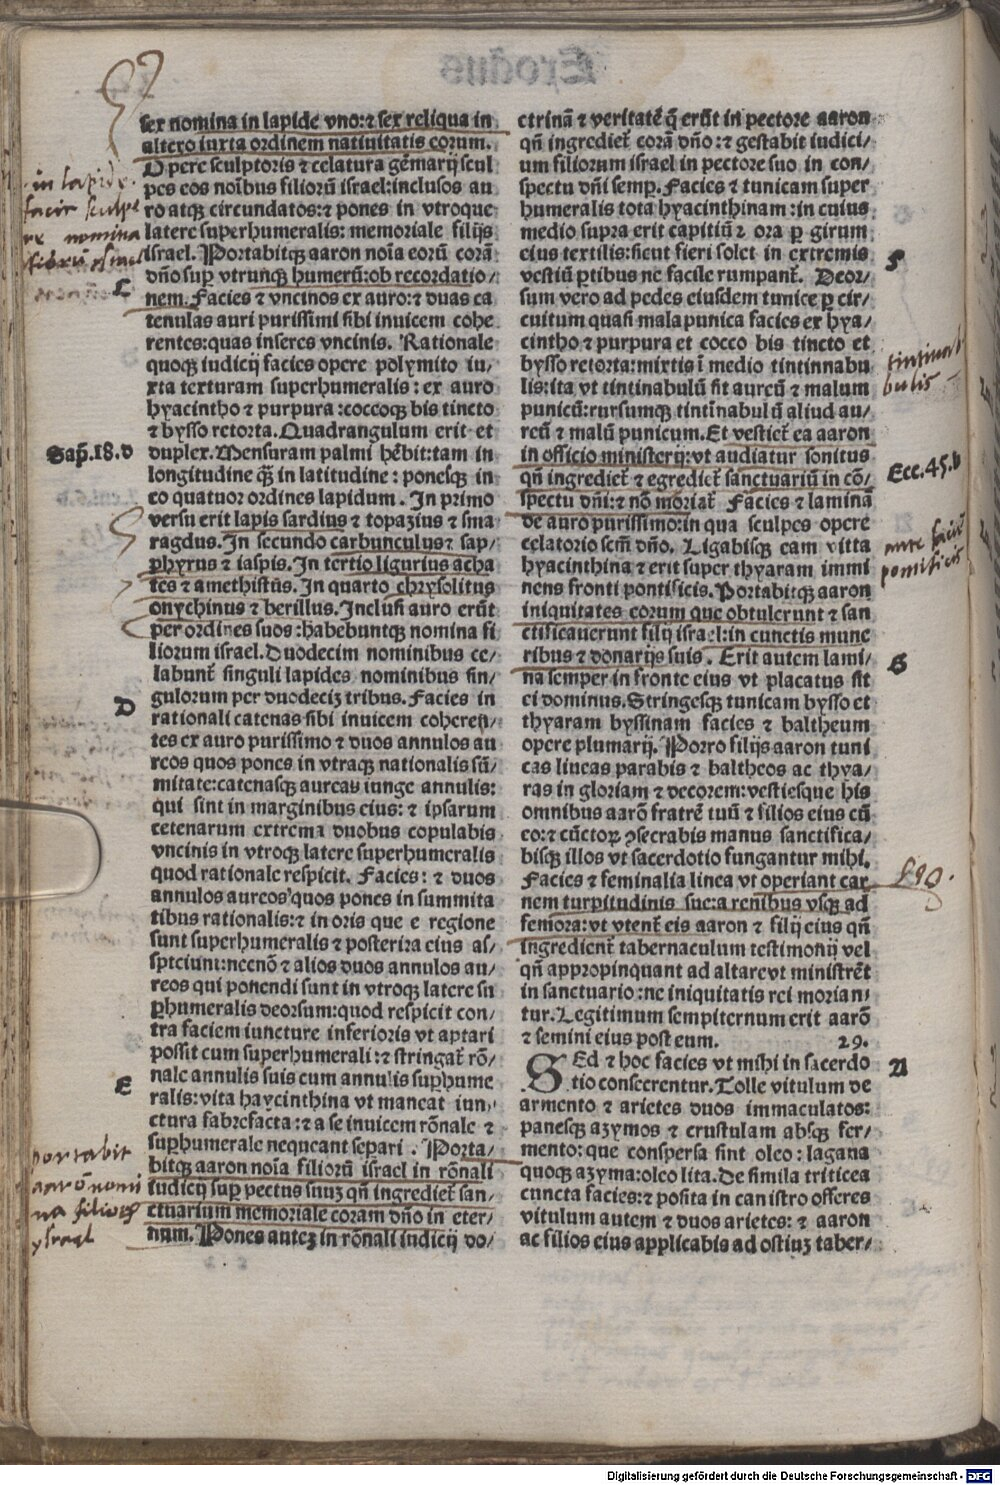 sex nomina in lapide vno:⁊ sex reliqua in
altero iuxta ordinem natiuitatis eorum.
Opere sculptoris ⁊ celatura gēmarij scul
pes eos noībus filiorū israel:inclusos au
ro atqꝫ circundatos:⁊ pones in vtroque
latere superhumeralis: memoriale filijs
israel. Portabitqꝫ aaron noīa eorū corā
dño suꝑ vtrunqꝫ humerū:ob recordatio/
nem. Facies ⁊ vncinos ex auro:⁊ duas ca
tenulas auri purissimi sibi inuicem cohe
rentes:quas inseres vncinis. Rationale
quoqꝫ iudicij facies opere polymito iu/
xta texturam superhumeralis : ex auro
hyacintho ⁊ purpura :coccoqꝫ bis tincto
⁊ bysso retorta. Quadrangulum erit et
duplex. Mensuram palmi hēbit:tam in
longitudine qꝫ̄ in latitudine : ponesqꝫ in
eo quatuor ordines lapidum . In primo
versu erit lapis sardius ⁊ topazius ⁊ sma
ragdus. In secundo carbunculus ⁊ sap/
phyrus ⁊ iaspis. In tertio ligurius acha
tes ⁊ amethistus. In quarto chrysolitus
onychinus ⁊ berillus. Inclusi auro erūt
per ordines suos :habebuntqꝫ nomina fi
liorum israel. Duodecim nominibus ce/
labunt̄ singuli lapides nominibus sin/
gulorum per duodeciꝫ tribus. Facies in
rationali catenas sibi inuicem coheren/
tes ex auro purissimo ⁊ duos annulos au
reos quos pones in vtraqꝫ nationalis sū/
mitate:catenasqꝫ aureas iunge annulis:
qui sint in marginibus eius: ⁊ ipsarum
cetenarum extrema duobus copulabis
vncinis in vtroqꝫ latere superhumeralis
quod rationale respicit. Facies: ⁊ duos
annulos aureos quos pones in summita
tibus rationalis:⁊ in oris que e regione
sunt superhumeralis ⁊ posterira eius as/
sptciunt:necnō ⁊ alios duos annulos au/
reos qui ponendi sunt in vtroqꝫ latere su
ꝑhumeralis deorsum:quod respicit con/
tra faciem iuncture inferioris vt aptari
possit cum superhumerali :⁊ stringat̄ rō/
nale annulis suis cum annulis suꝑhume
ralis:vita haycinthina vt maneat iun/
ctura fabrefacta:⁊ a se inuicem rōnale ⁊
suꝑhumerale nequeant separi . Porta/
bitqꝫ aaron noīa filiorū israel in rōnali
iudicij suꝑ pectus suuꝫ qn̄ ingrediet̄ san/
ctuarium memoriale coram dño in eter/
num. Pones auteꝫ in rōnali iudicij do/
ctrinā ⁊ veritatē q̄ erūt in pectore aaron
qn̄ ingrediet̄ corā dño:⁊ gestabit iudici/
um filiorum israel in pectore suo in con/
spectu dñi semꝑ. Facies ⁊ tunicam super
humeralis tota hyacinthinam :in cuius
medio supra erit capitiū ⁊ ora ꝑ girum
eius textilis:sicut fieri solet in extremis
vestiū ꝑtibus ne facile rumpant̄. Deor/
sum vero ad pedes eiusdem tunice ꝑ cir/
cuitum quasi mala punica facies ex hya/
cintho ⁊ purpura et cocco bis tincto et
bysso retorta:mixtis ī medio tintinnabu
lis:ita vt tintinabulū sit aureū ⁊ malum
punicū:rursumqꝫ tintinabulū aliud au/
reū ⁊ malū punicum. Et vestiet̄ ea aaron
in officio ministerij:vt audiatur sonitus
qn̄ ingrediet̄ ⁊ egrediet̄ sanctuariū in cō/
spectu dñi:⁊ nō moriat̄ Facies ⁊ laminā
de auro purissimo:in qua sculpes opere
celatorio scm̄ dño. Ligabisqꝫ eam vitta
hyacinthina ⁊ erit super thyaram immi
nens fronti pontificis. Portabitqꝫ aaron
iniquitates eorum que obtulerunt ⁊ san
ctificauerunt filij israel:in cunctis mune
ribus ⁊ donarijs suis . Erit autem lami/
na semper in fronte eius vt placatus sit
ei dominus. Stringesqꝫ tunicam bysso et
thyaram byssinam facies ⁊ baltheum
opere plumarij. Porro filijs aaron tuni
cas lineas parabis ⁊ baltheos ac thya/
ras in gloriam ⁊ decorem:vestiesque his
omnibus aarō fratrē tuū ⁊ filios eius cū
eo:⁊ cūctoꝝ ꝯsecrabis manus sanctifica/
bisqꝫ illos vt sacerdotio fungantur mihi.
Facies ⁊ feminalia linea vt operiant car
nem turpitudinis sue:a renibus vsqꝫ ad
femora:vt vtent̄ eis aaron ⁊ filij eius qn̄
ingredient̄ tabernaculum testimonij vel
qn̄ appropinquant ad altare vt ministrēt
in sanctuario :ne iniquitatis rei morian/
tur. Legitimum sempiternum erit aarō
⁊ semini eius post eum. 29.
SEd ⁊ hoc facies vt mihi in sacerdo
tio consecrentur. Tolle vitulum de
armento ⁊ arietes duos immaculatos:
panesqꝫ azymos ⁊ crustulam absqꝫ fer/
mento:que conspersa sint oleo : lagana
quoqꝫ azyma:oleo lita. De simila triticea
cuncta facies:⁊ posita in canistro offeres
vitulum autem ⁊ duos arietes: ⁊ aaron
ac filios eius applicabis ad ostiuꝫ taber/
in lapide
facir sculpe
re nomina
C
Sap̄.18.d
D
E
portabit
aarō nomi
na filioꝝ
ysrael
F
tintinna
bulis
Ecc.45.b
ante faciē
pontificis
G
A
Digitalisierung gefördert durch die Deutsche Forschungsgemeinschaft - DFG